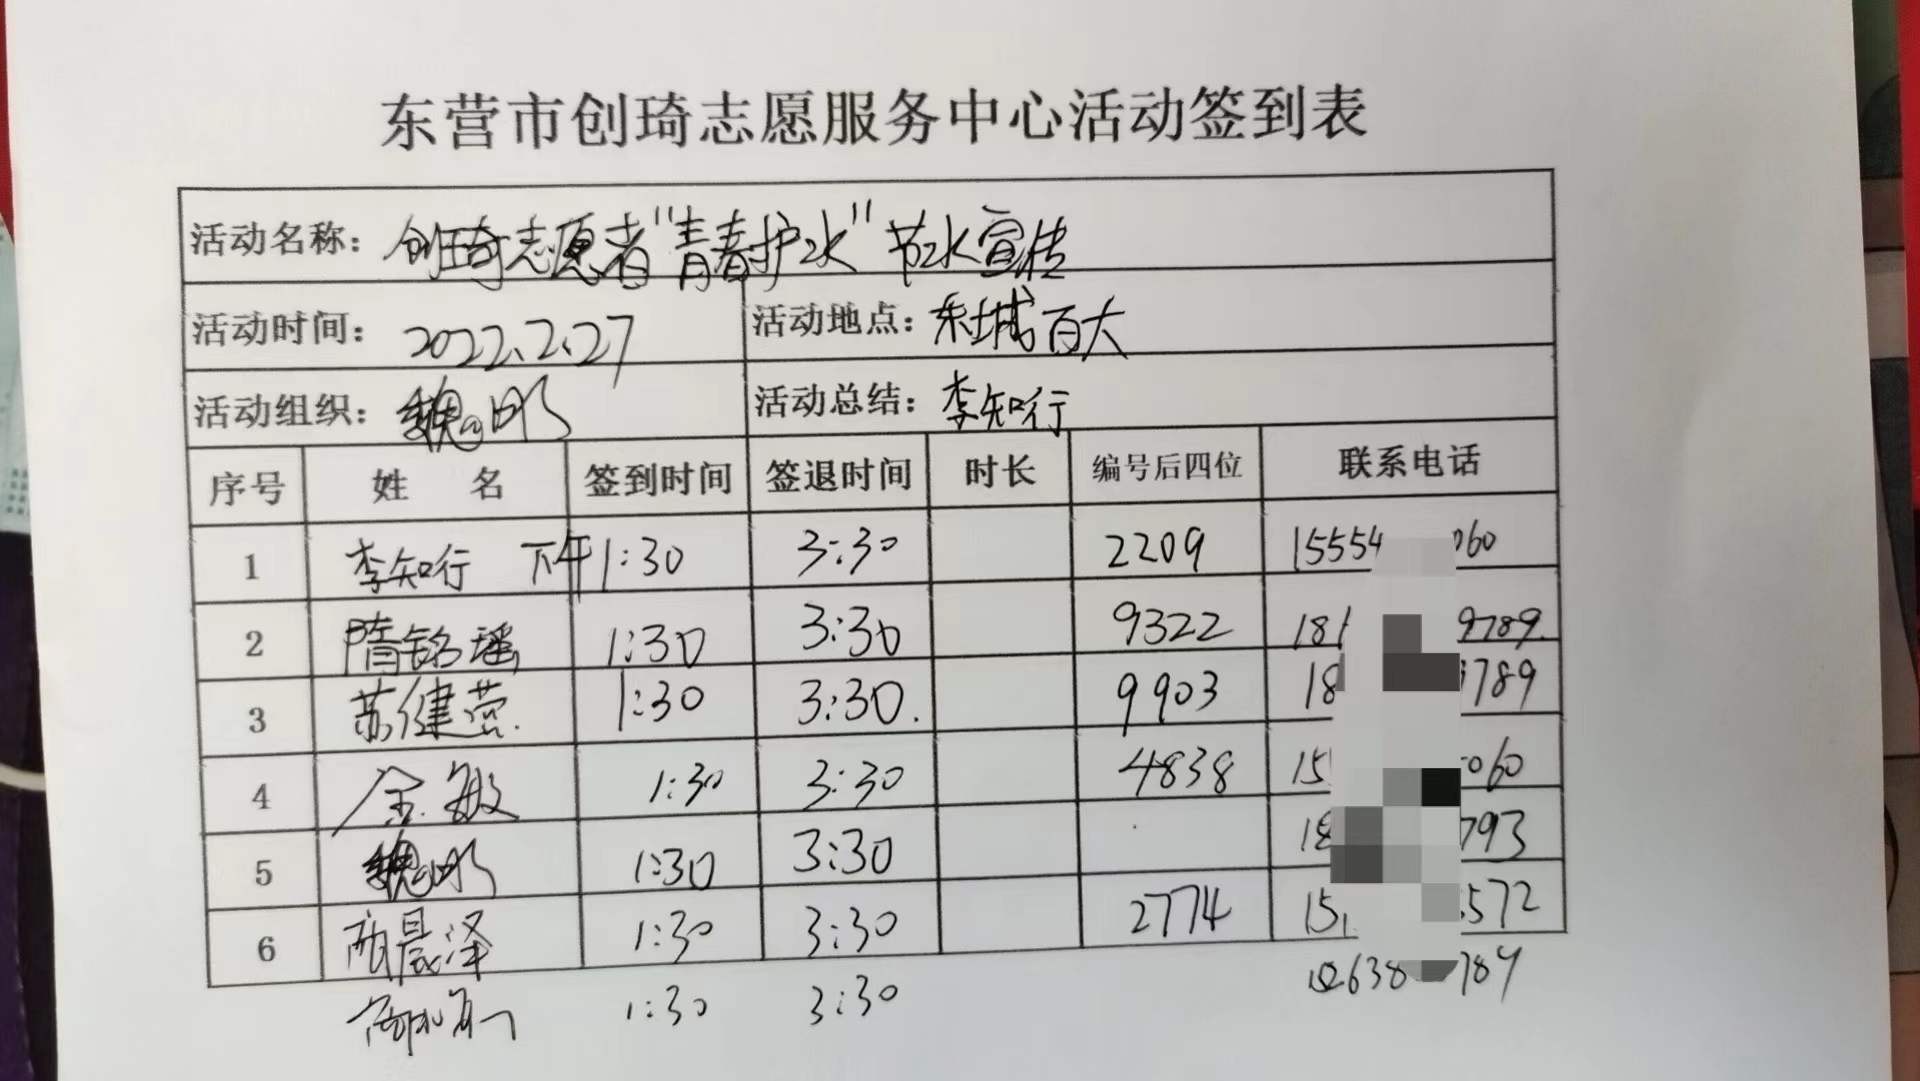 东营市创琦志愿服务中心活动签到表
活动名称：创琦志愿者"青春护水"节水宣传
活动时间：2022.2.27 活动地点：东城百大
活动组织：魏明 活动总结：李知行
序号 姓 名 签到时间 签退时间 时长 编号后四位 联系电话
1 李知行 下午1:30 3:30 2209 15554 060
2 隋铭瑶 1:30 3:30 9322 181 9789
3 苏健营 1:30 3:30. 9903 18 789
4 金敏 1:30 3:30 4838 15 060
5 魏明 1:30 3:30 18 793
6 晨泽 1:30 3:30 2774 15 572
1:30 3:30 638 789